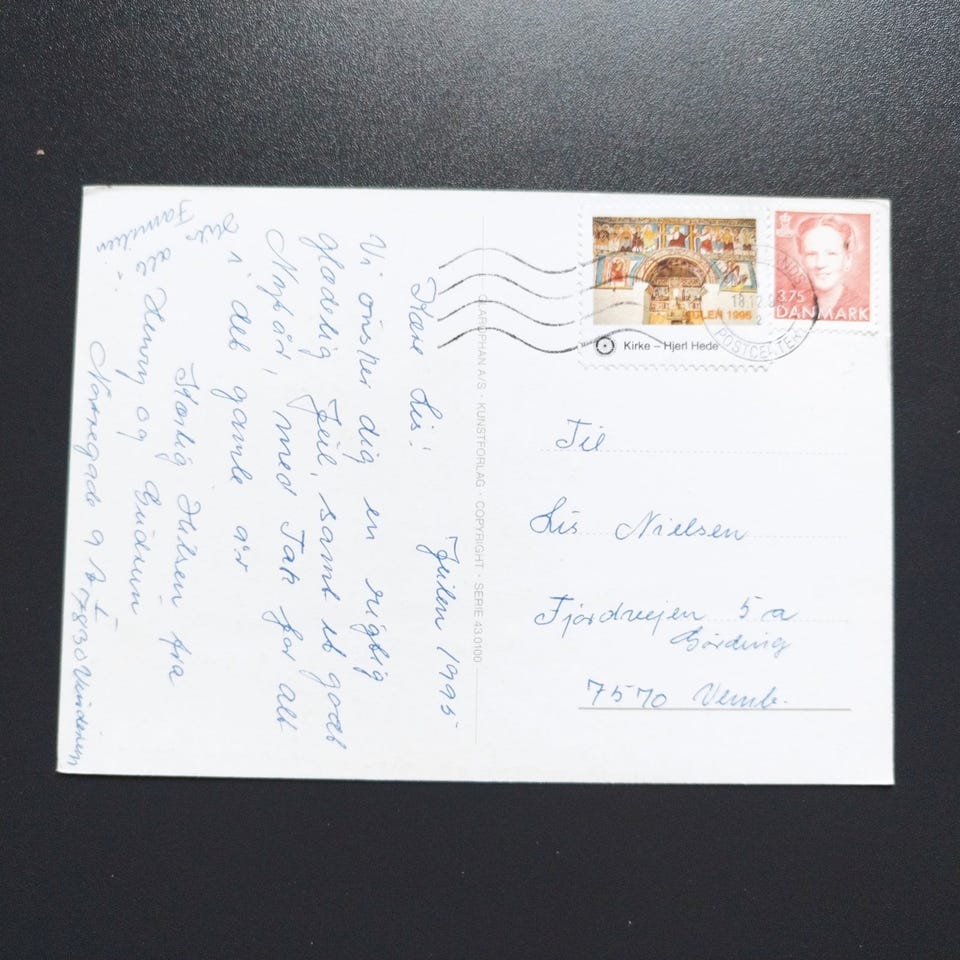 Julen 1995
Kære Lis!
Vi önsker dig en rigtig
glædelig Jul, samt et godt
Nytår, med Tak for alt
i det gamle år
Kærlig Hilsen fra
Henry og Gudrun
Nørregade 9 7830 Vinderup
Hils all
Familien!
GARDPHAN A/S · KUNSTFORLAG · COPYRIGHT · SERIE 43.0100
JULEN 1995
Kirke – Hjerl Hede
3.75
DANMARK
18.12.
POSTCENTER
Til
Lis Nielsen
Fjordvejen 5 a
Gørding
7570 Vemb.